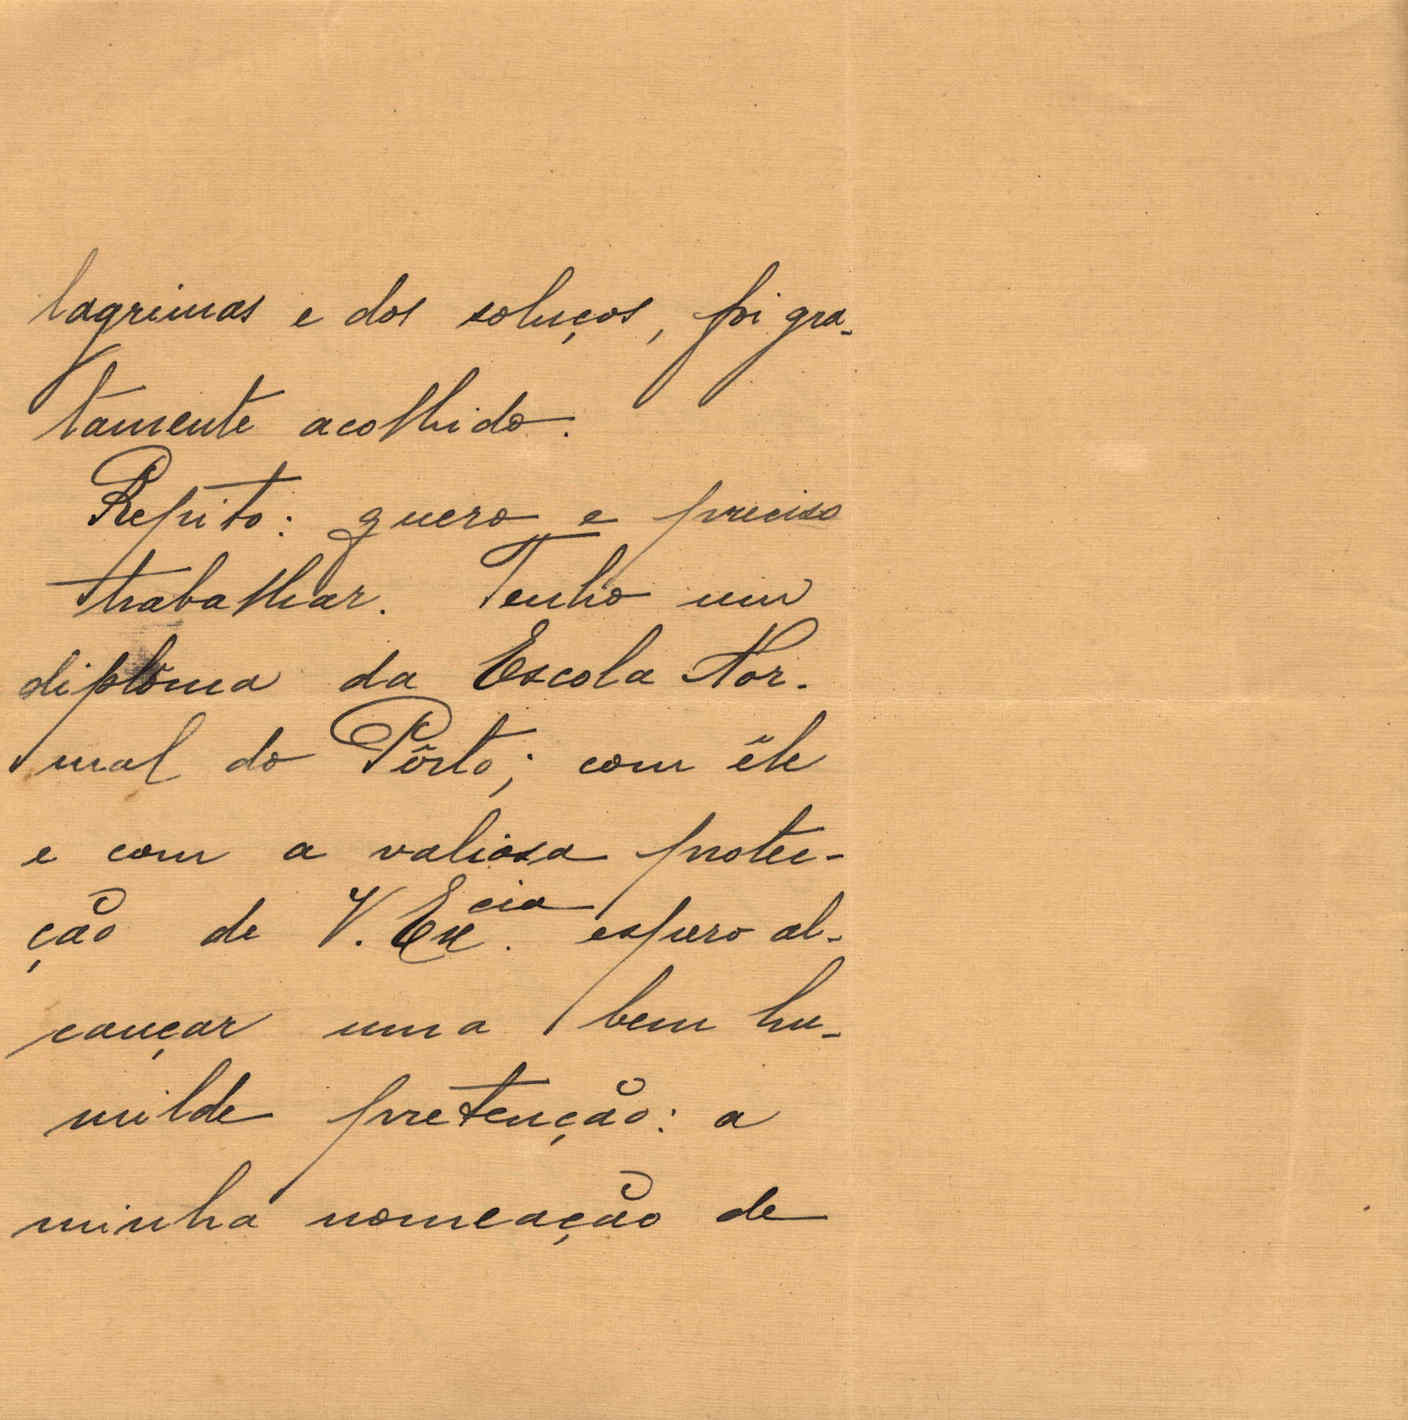 lagrimas e dos soluços, foi gra-
tamente acolhido.
Repito: quero e preciso
trabalhar. Tenho um
diplôma da Escola Nor-
mal do Pôrto; com êle
e com a valiosa protec-
ção de V. Ex.cia espero al-
cançar uma bem hu-
milde pretenção: a
minha nomeação de